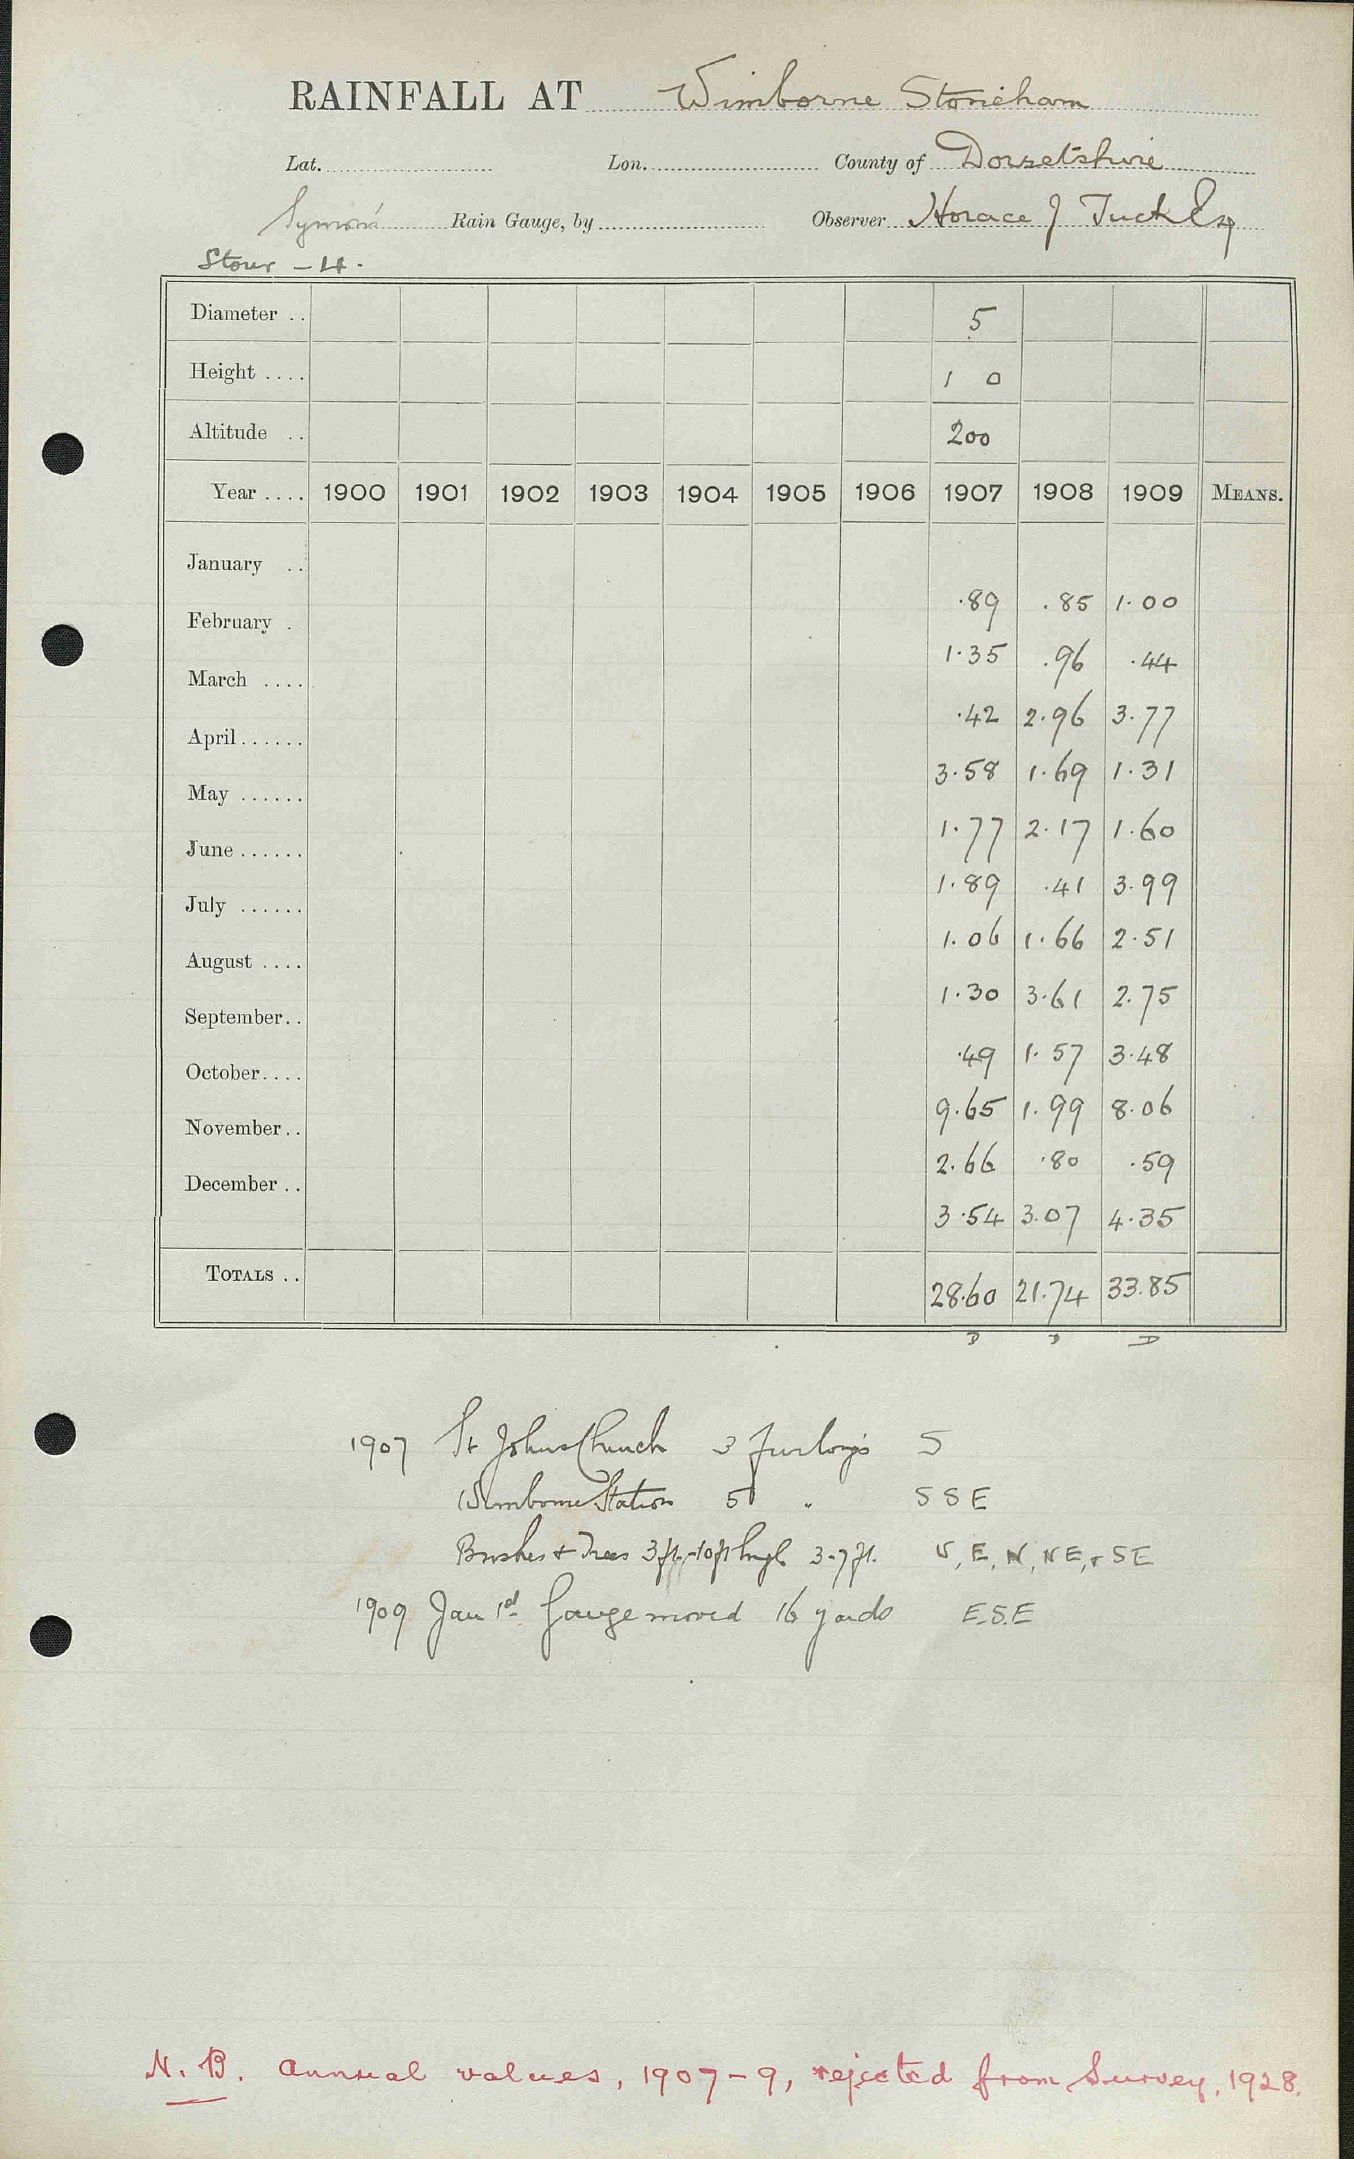 RAINFALL AT Wimborne Stoneham
Lat. Lon. County of Dorsetshire
Symons' Rain Gauge, by Observer Horace J Tuck Esq
Stour - 4.
Diameter .. 5
Height .... 1 0
Altitude .. 200
Year .... 1900 1901 1902 1903 1904 1905 1906 1907 1908 1909 MEANS.
January .. .89 .85 1.00
February . 1.35 .96 .44
March .... .42 2.96 3.77
April...... 3.58 1.69 1.31
May ...... 1.77 2.17 1.60
June ...... 1.89 .41 3.99
July ...... 1.06 1.66 2.51
August .... 1.30 3.61 2.75
September.. .49 1.57 3.48
October.... 9.65 1.99 8.06
November.. 2.66 .80 .59
December .. 3.54 3.07 4.35
TOTALS .. 28.60 21.74 33.85
D D D
1907 St Johns Church 3 furlongs S
Wimborne Station 5 " SSE
Bushes & Trees 3ft-10ft high 3-7ft. E, N, NE, & SE
1909 Jan 1st Gauge moved 16 yards E.S.E
N.B. Annual values, 1907-9, rejected from Survey, 1928.